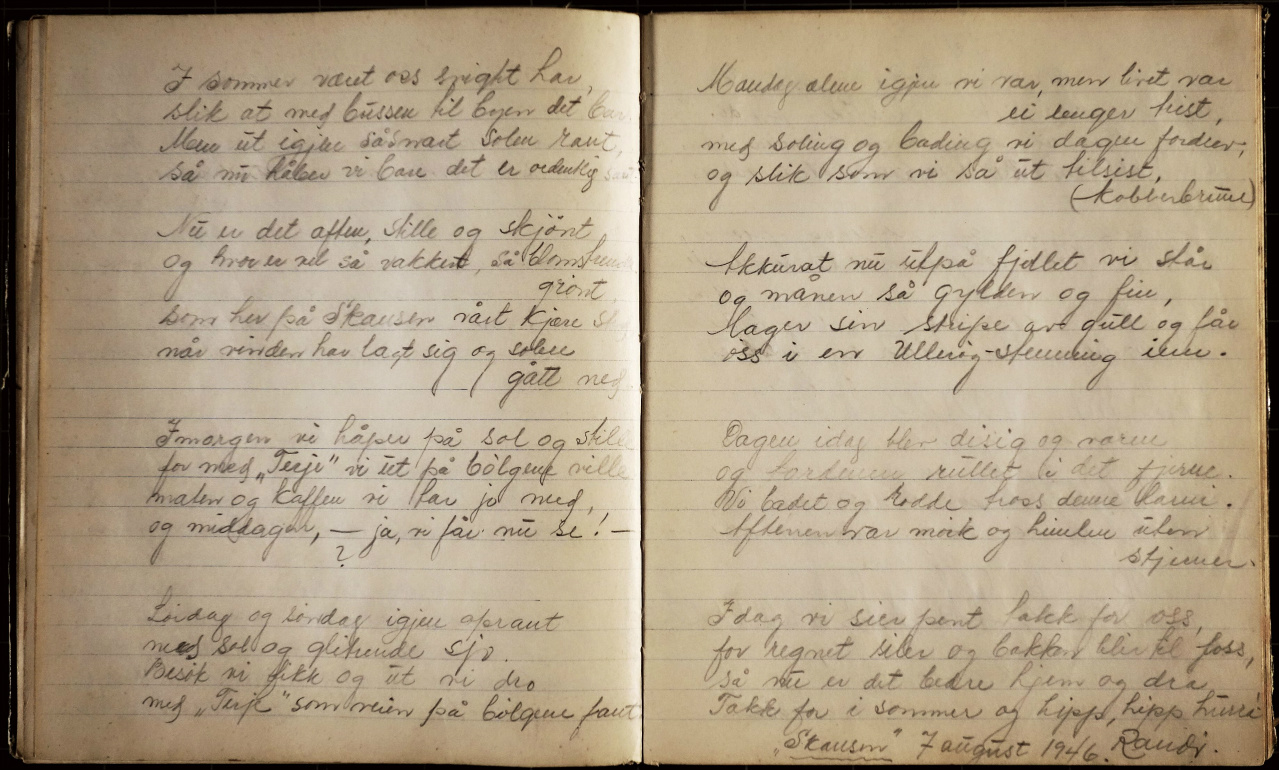 I sommer været oss svight har,
slik at med bussen til byen det bar.
Men ut igjen såsnart solen rant,
så nu håber vi bare det er ordentlig sant.
Nu er det aften, stille og skjönt
og hvor er vel så vakkert, så blomstrende
grönt.
som her på Skausen vårt kjære
når vinden har lagt sig og solen
gått ned.
Imorgen vi håper på sol og stille
for med „Terje" vi ut på bölgene ville
maten og kaffen vi har jo med,
og middagen, — ja, vi får nu se! —
?
Lördag og söndag igjen oprant
med sol og glitrende sjö.
Besök vi fikk og ut vi dro
med „Terje" som veien på bölgene fant
Mandag alene igjen vi var, men livet var
ei lenger trist,
med soling og bading vi dagen fordrev,
og slik som vi så ut tilsist,
(Kobberbrune)
Akkurat nu utpå fjellet vi står
og månen så gylden og fin,
lager sin stripe av gull og får
oss i en Ullerög-stemning inn.
Dagen idag blev disig og varm
og tordenen rullet i det fjerne.
Vi badet og rodde tross denne larm.
Aftenen var mörk og himlen uten
stjerner.
Idag vi sier pent takk for oss,
for regnet siler og bakken blir til foss,
så nu er det bedre hjem og dra
Takk for i sommer og hipp, hipp hurra
„Skausen" 7 august 1946. Randi.